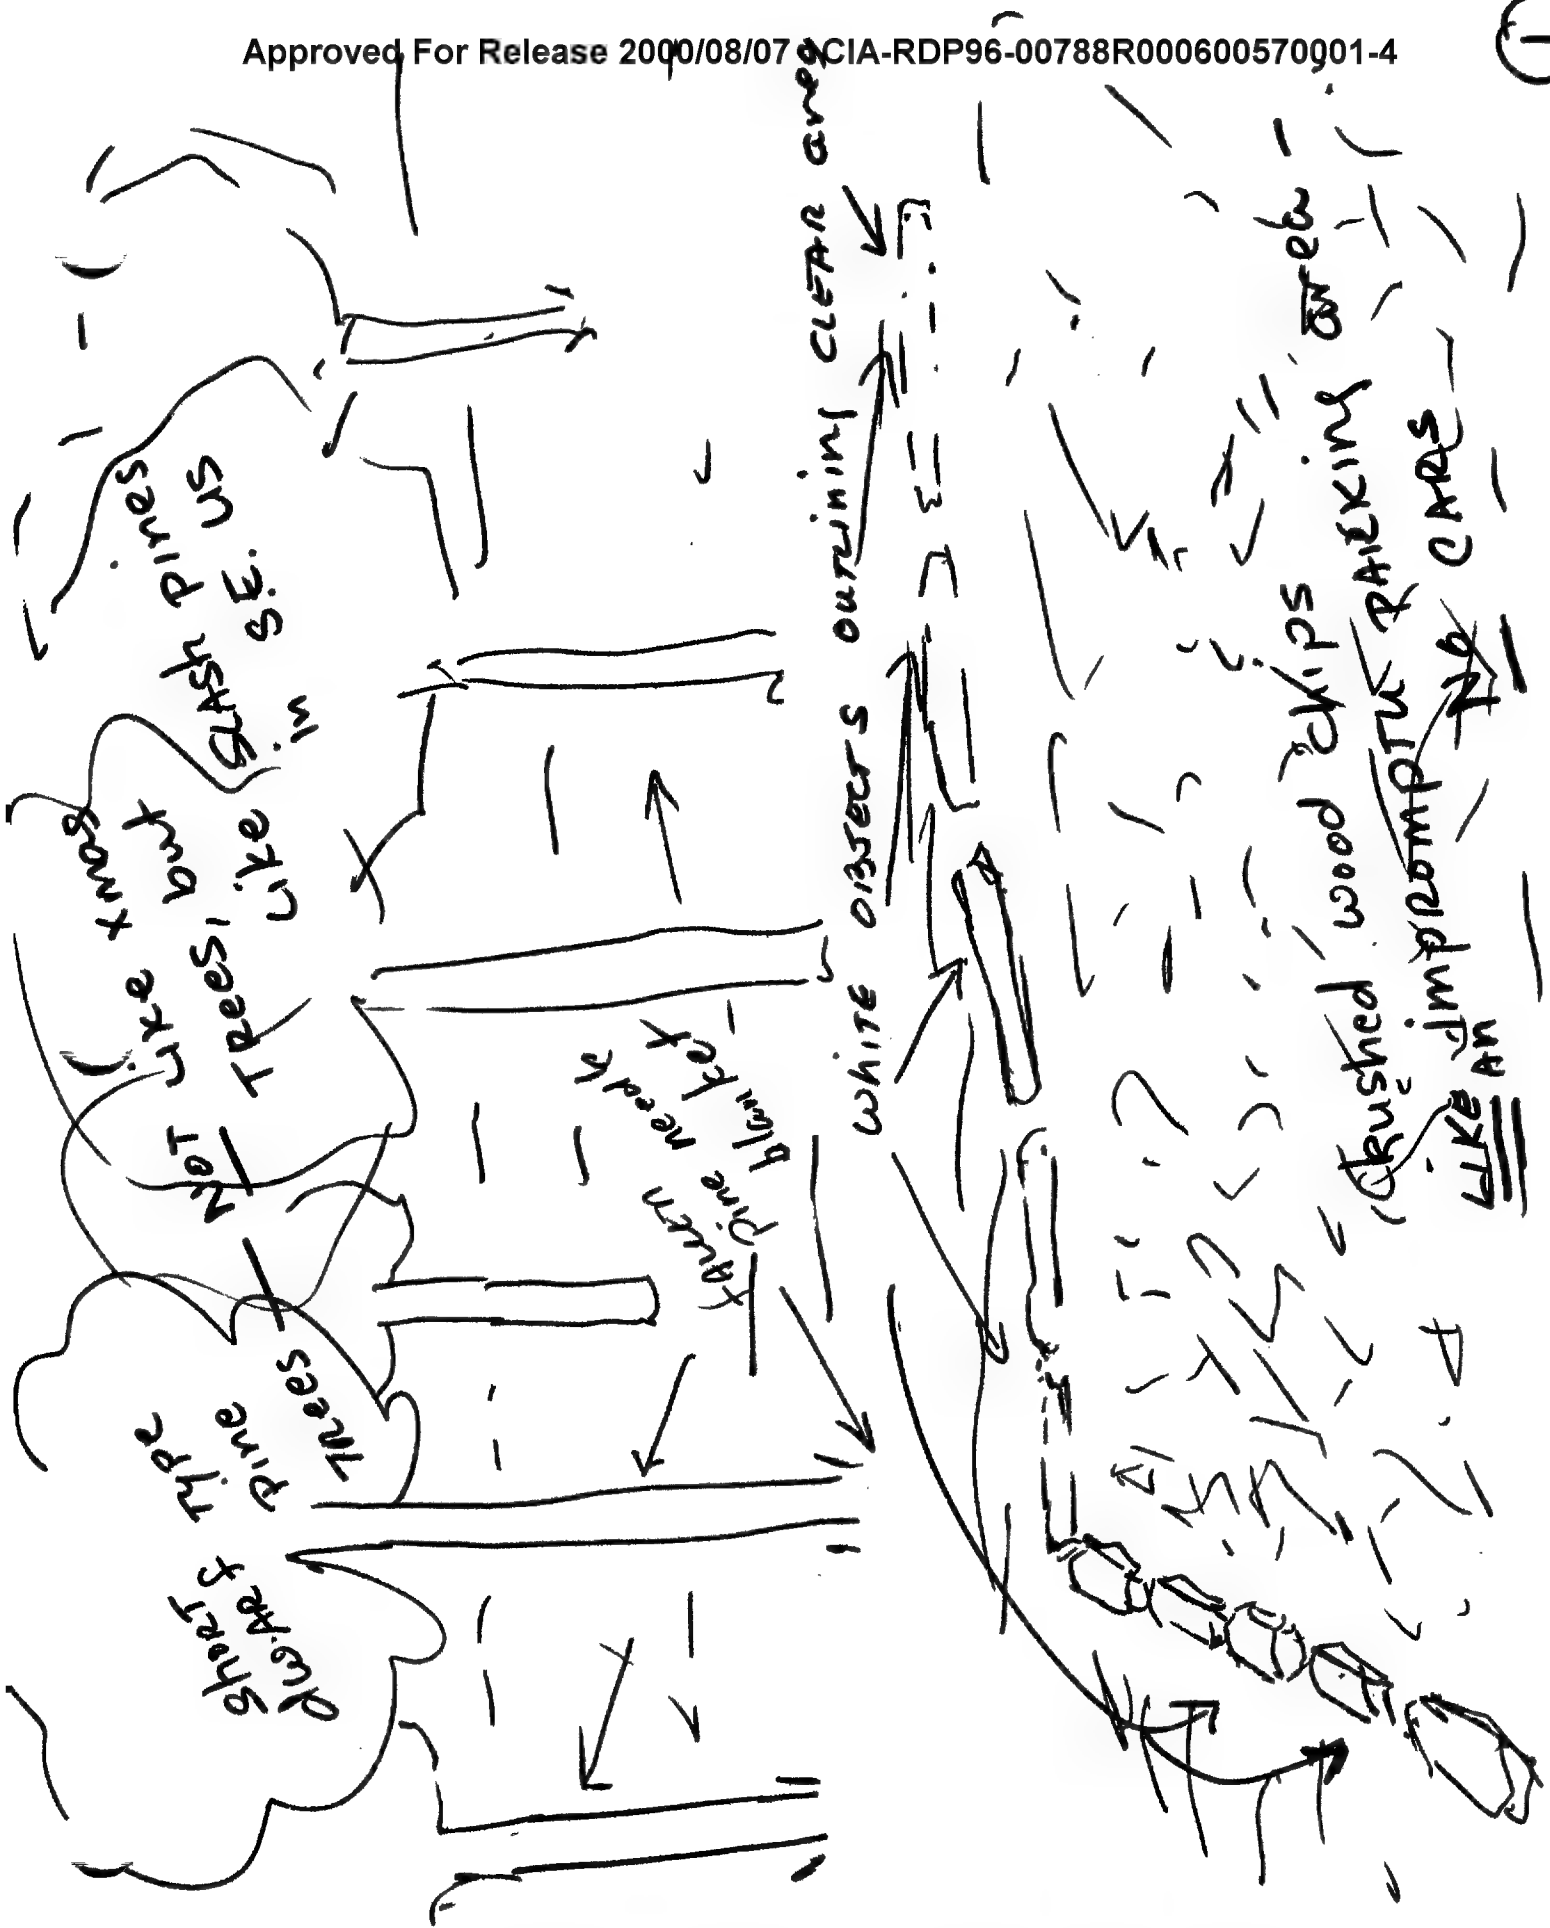 Approved For Release 2000/08/07 : CIA-RDP96-00788R000600570001-4
1
SHORT TYPE
DWARF PINE
TREES
— NOT LIKE XMAS
TREES, but
LIKE SLASH PINES
in S.E. US
FALLEN
pine needle
blanket
WHITE OBJECTS OUTLINING CLEAR area
Crushed wood chips
LIKE AN IMPROMPTU PARKING area -
NO CARS